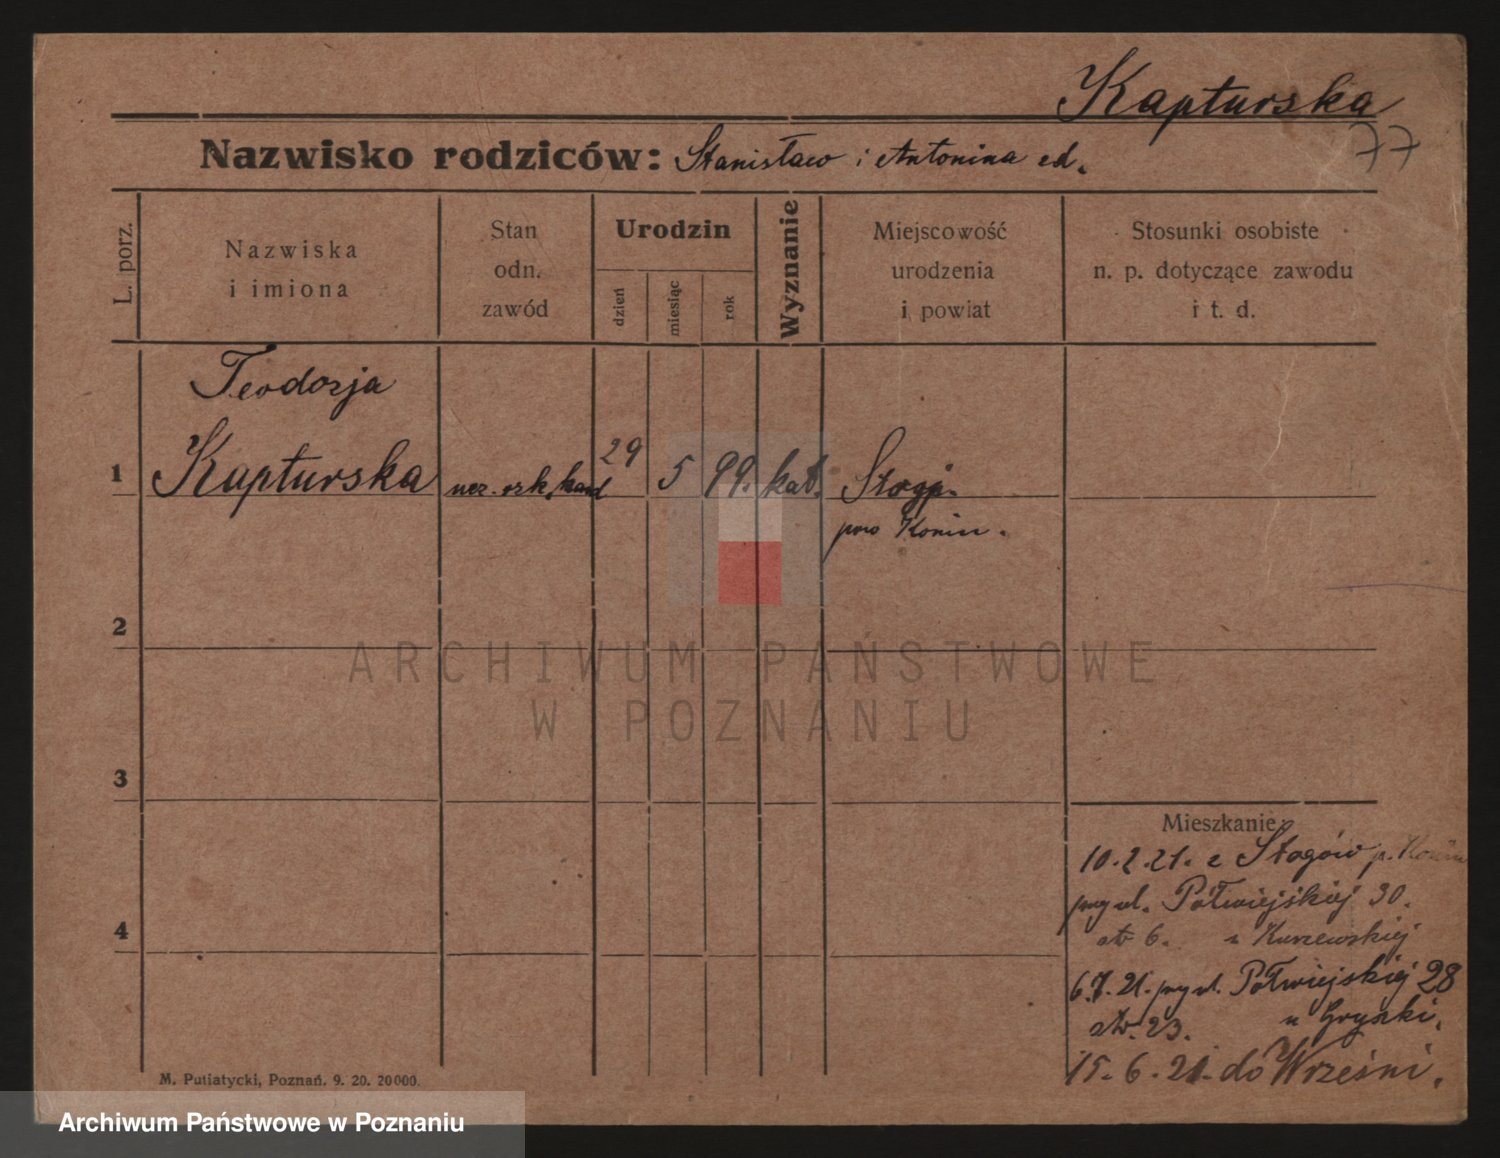 Kapturska
77
Nazwisko rodziców: Stanisław i Antonina ed.
L. porz.
Nazwiska
i imiona
Stan
odn.
zawód
Urodzin
dzień
miesiąc
rok
Wyznanie
Miejscowość
urodzenia
i powiat
Stosunki osobiste
n. p. dotyczące zawodu
i t. d.
Teodozja
1 Kapturska 29 5 99. kat.
pow Konin.
2
ARCHIWUM PAŃSTWOWE
W POZNANIU
3
4
Mieszkanie:
10.2.21. z Stogów p. Konin
przy ul. Półwiejskiej 30.
6.
6.7.21. przy ul. Półwiejskiej 28
23.
15.6.21. do Wrześni.
M. Putiatycki, Poznań. 9. 20. 20000.
Archiwum Państwowe w Poznaniu